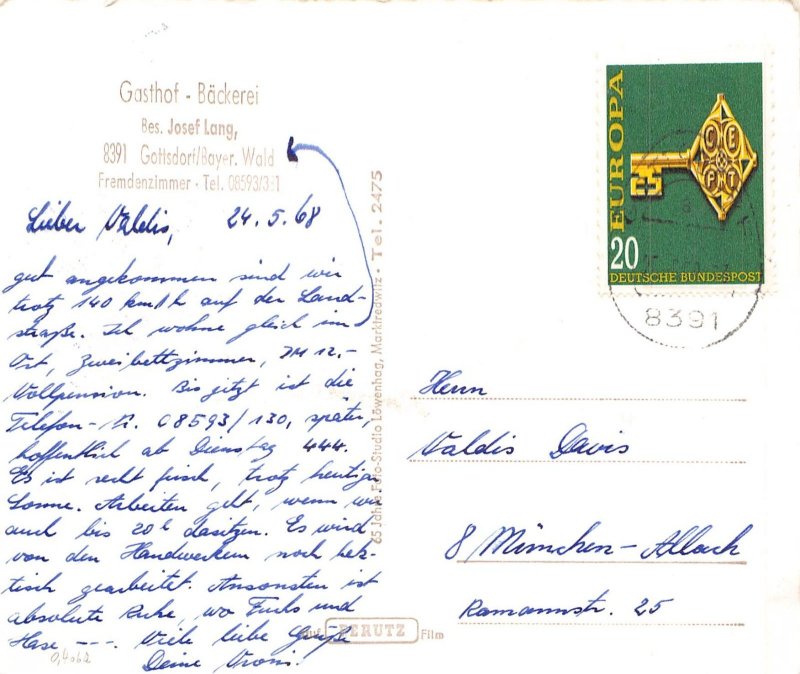 Gasthof - Bäckerei
Bes. Josef Lang,
8391 Gottsdorf/Bayer. Wald
Fremdenzimmer · Tel. 08593/3 1
Lieber Valdis, 24.5.68
gut angekommen sind wir
trotz 140 km/h auf der Land-
straße. Ich wohne gleich im
Ort, Zweibettzimmer, DM 12.-
Vollpension. Bis jetzt ist die
Telefon-Nr. 08593/130, später,
hoffentlich ab Dienstag 444.
Es ist recht frisch, trotz heutiger
Sonne. Arbeiten geht, wenn wir
auch bis 20h dasitzen. Es wird
von den Handwerkern noch hek-
tisch gearbeitet. Ansonsten ist
absolute Ruhe, wo Fuchs und
Hase ---. Viele liebe Grüße
Deine Vroni.
65 Jahre Foto-Studio Löwenhag, Marktredwitz · Tel. 2475
Auf PERUTZ Film
EUROPA
CEPT
20
DEUTSCHE BUNDESPOST
8391
Herrn
Valdis Davis
8 München-Allach
Ramannstr. 25